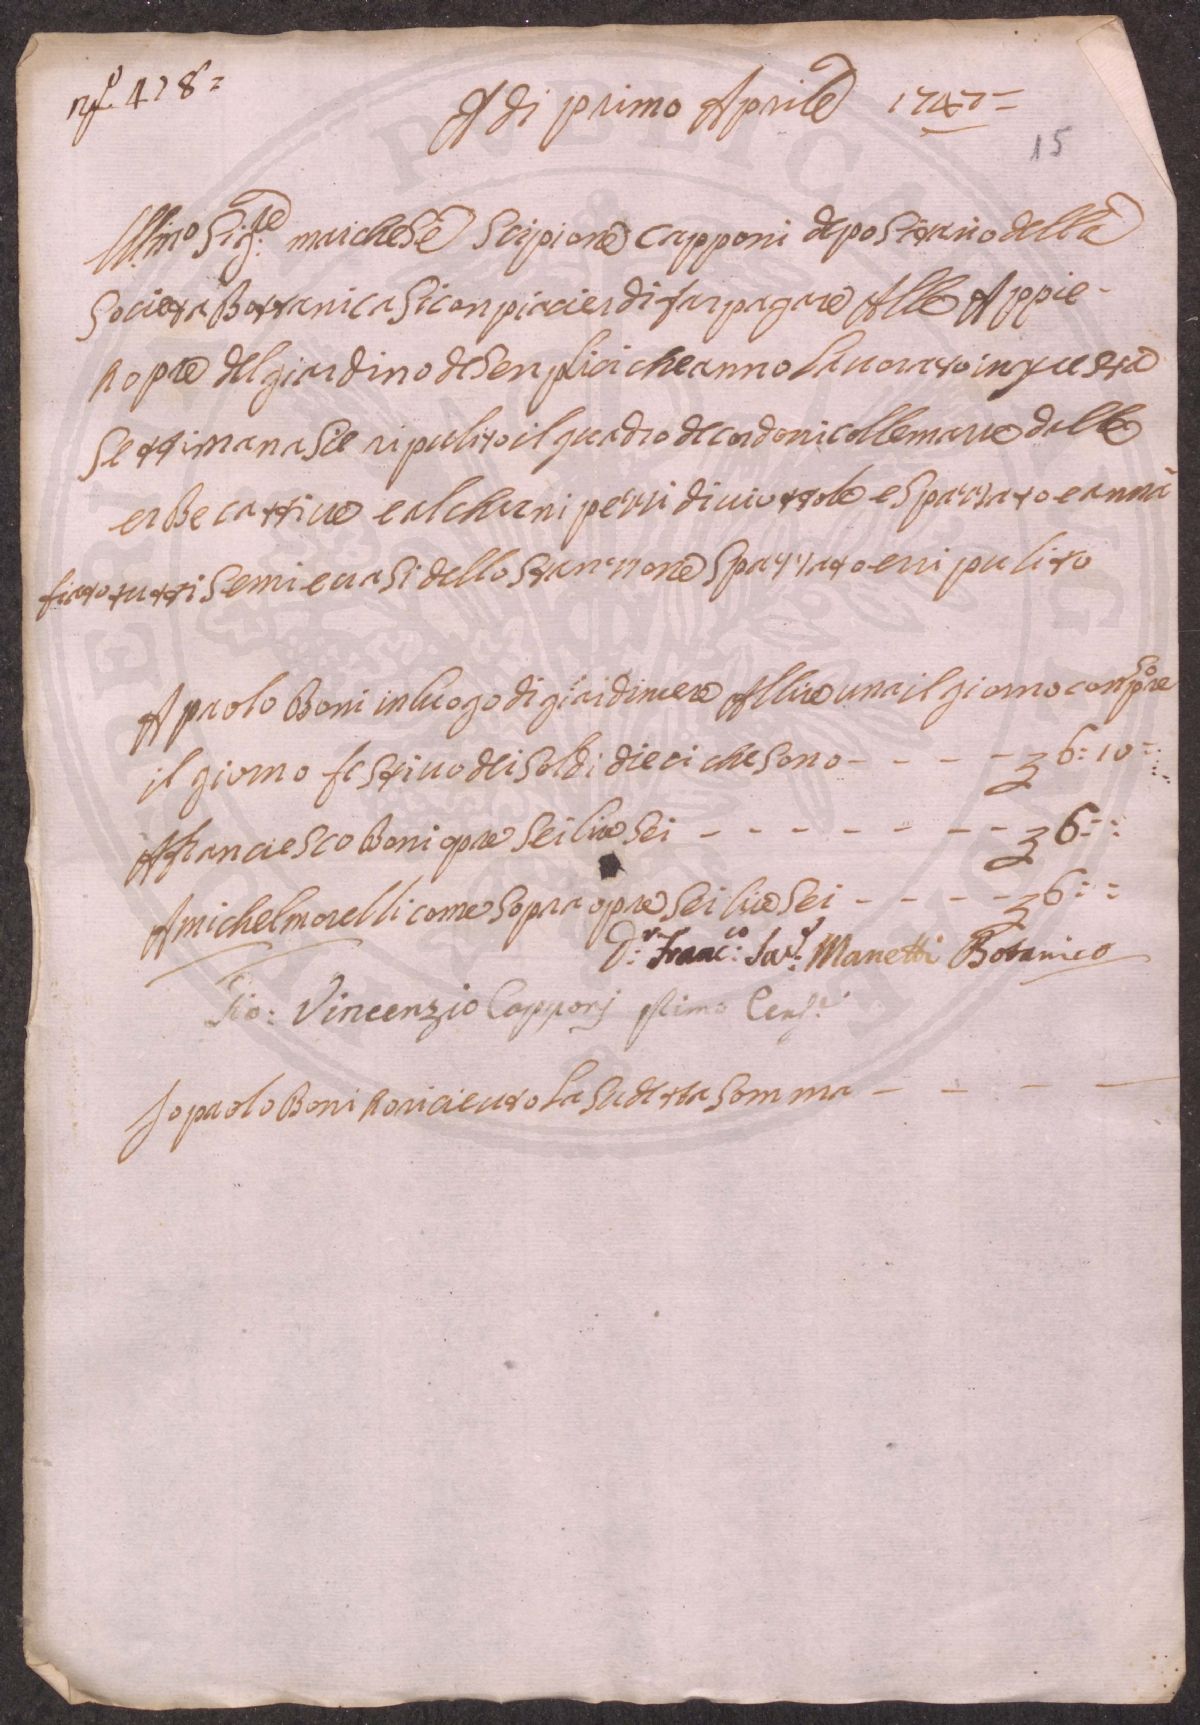 N.º 478=
A di primo Aprile 1747=
15
Illmo Sig.re marchese Scipione Capponi depositario della
Societa Bottanica Siconpiacier di far pagare Alle Appie-
ro pre del giardino de Senplici che anno Lavorato in questa
Settimana Sie ripulito il quadro de cordoni colle marve dalle
erbe cattive e alchuni pezzi di viottole e Spazzato e anna
fiato tutti Semi e vasi dello Stanzone Spazzato e rripulito
A paolo Boni in luogo di giardiniere Allire una il giorno conpre
So
il giorno festivo dei Soldi dieci che Sono - - - - - £ 6:10=
A franciesco Boni opre Sei lire Sei - - - - - - - - £ 6=:
A michel morelli come Sopra opre Sei lire Sei - - - - - £ 6=:
D.r Franc.co Sav.r Manetti Botanico
Gio: Vincenzio Capponj Primo
Jo paolo Boni o riceuto La Sudetta Somma - - - -
PUBLICA